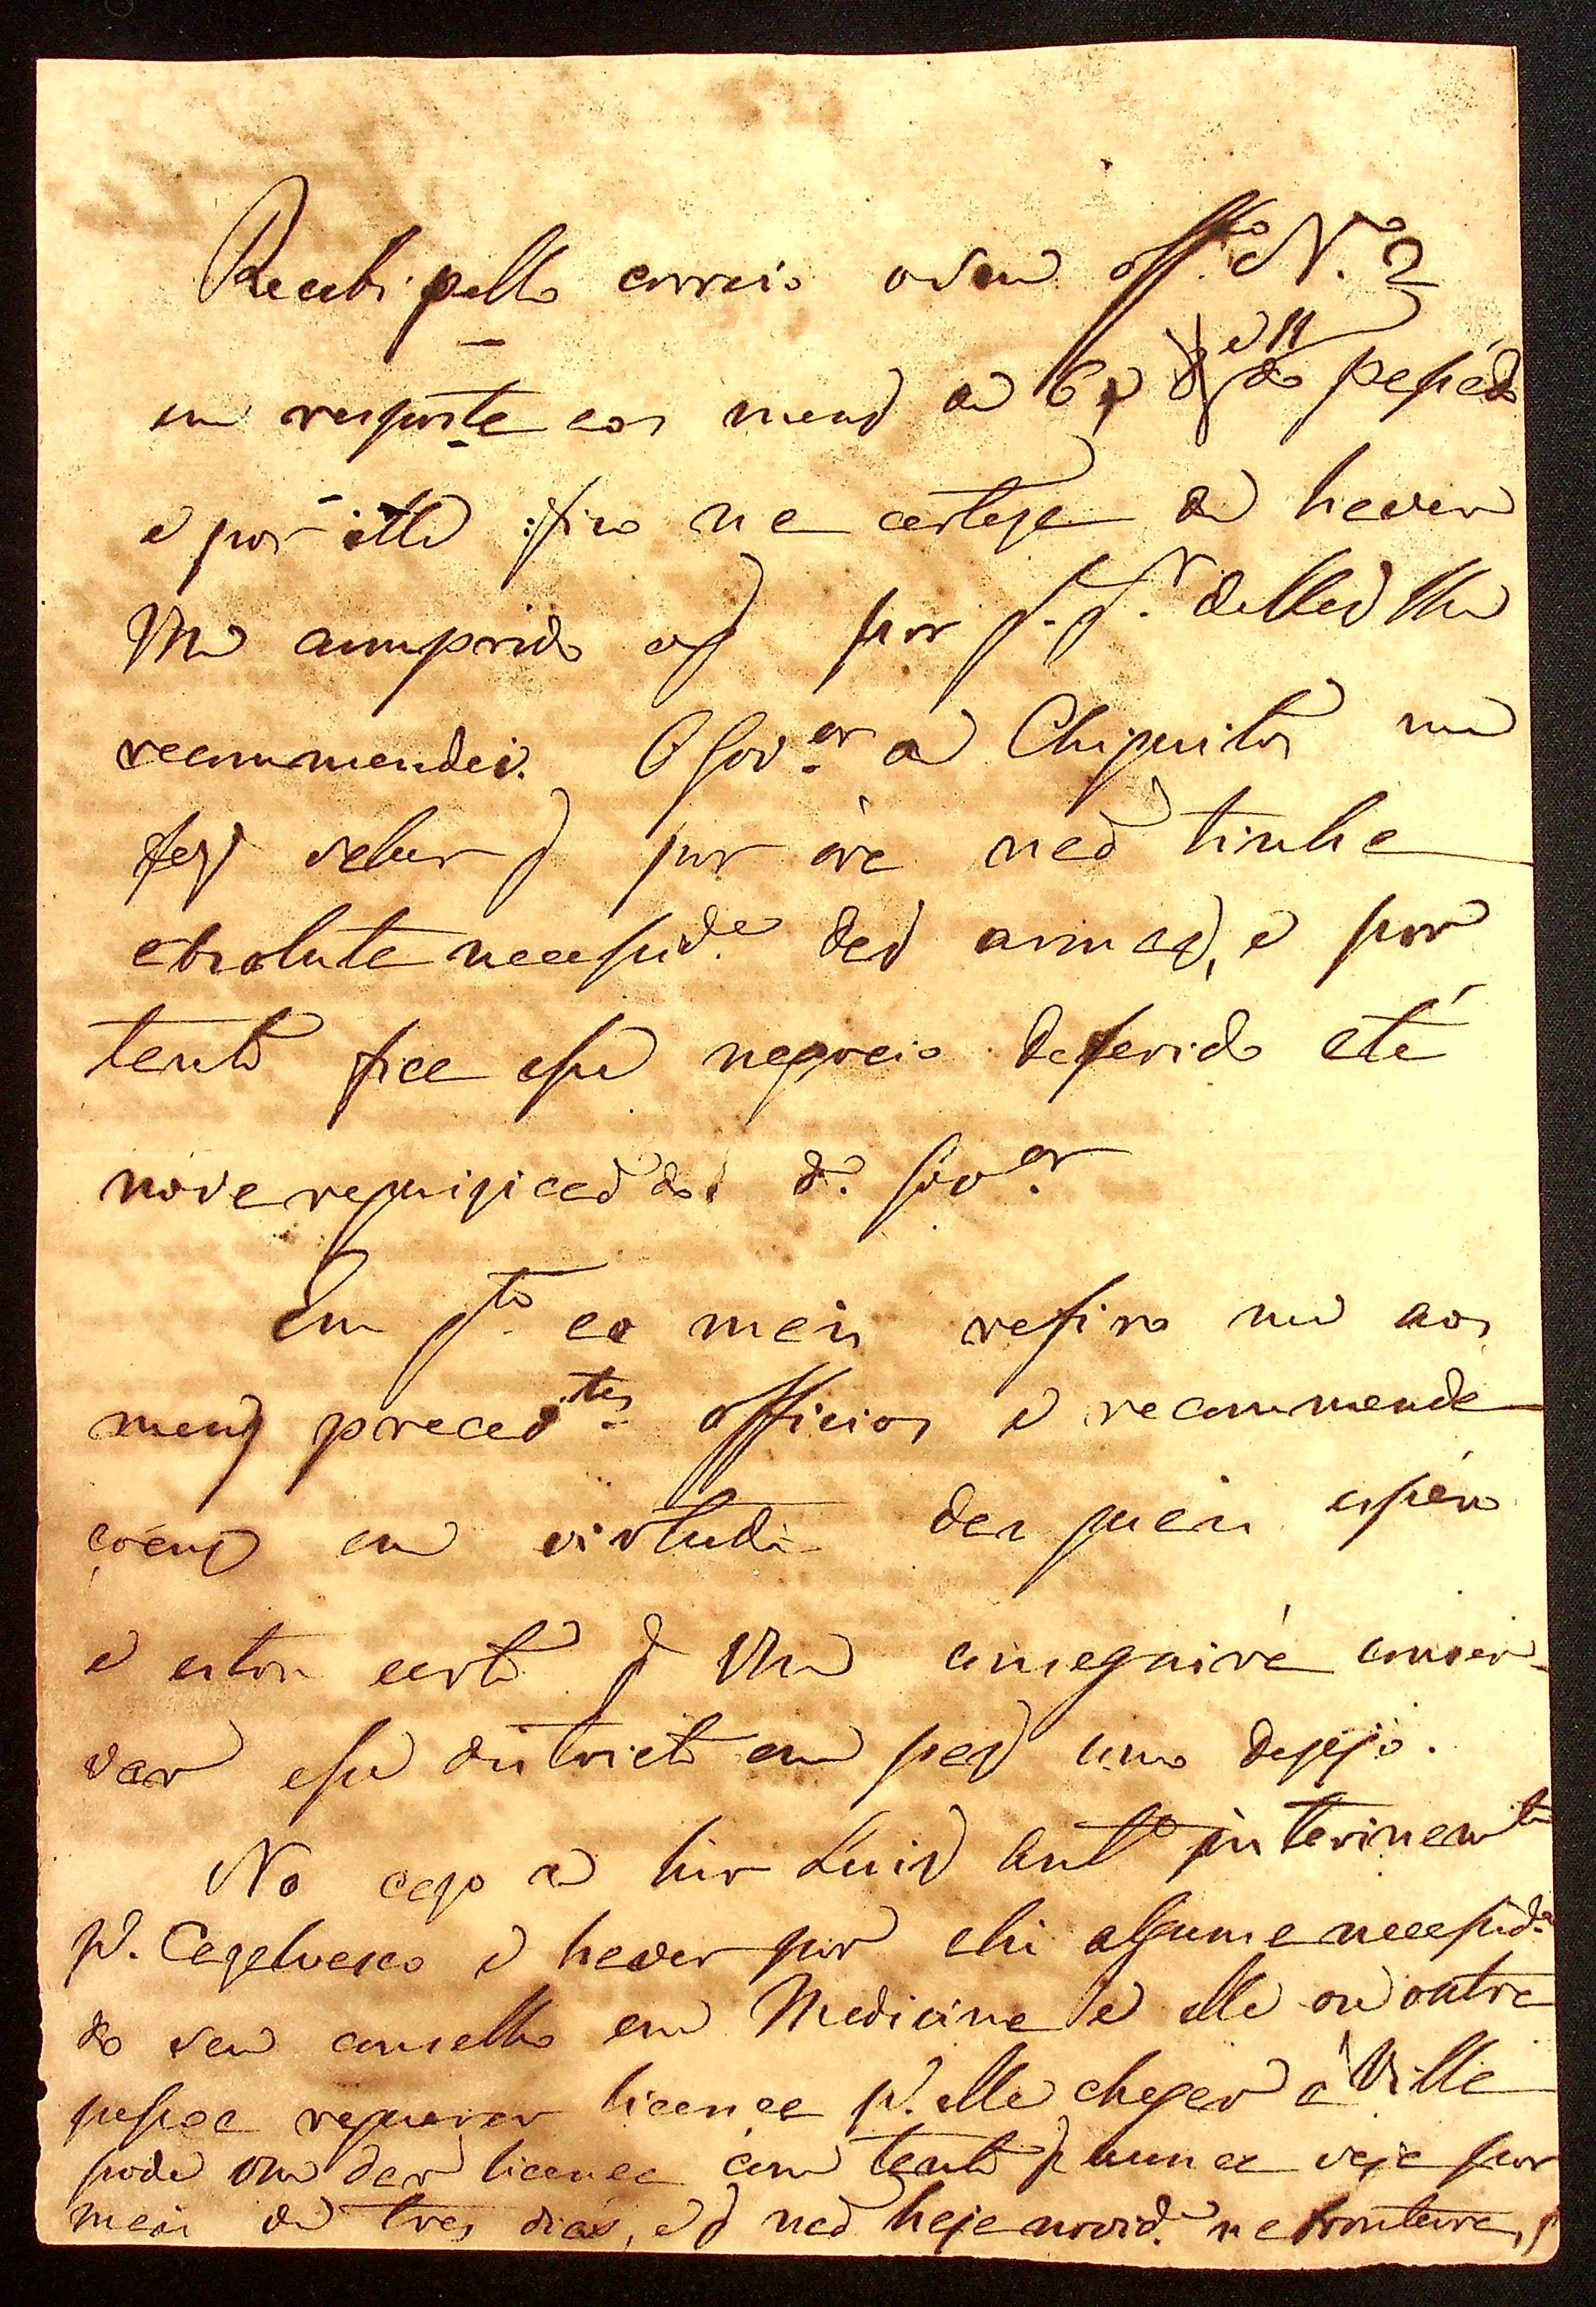 Recebi pello correio o seu off.º N.º 2
em resposta aos meus de 6 e 11 do passádo
e por elle fico na certeza de haver
Vm cumprido o q por p. p.r delles lhe
recommendei. O Gov.or de Chiquitos me
fez saber q por óra naõ tinha
absoluta necessid.e das armas, e por
tanto fica esse negocio deferido até
nóva requiziçaõ do d.º Gov.or
Em q.to ao mais refiro me aos
meus preced.tes officios e recommenda
çoens em virtude das quais espéro
e estou certo q Vm conseguirá conser-
var esse districto em paz como dezejo.
No cazo de hir Luis Ant.º interinam.te
p.ª Cazalvasco e haver por ahi alguma necessid.e
do seu conselho em Medicina e elle ou outra
pessoa requerer licença p.ª elle chegar a Villa
pode Vm dar licença com tanto q nunca seja por
mais de tres dias, e q naõ haja novid.e na fronteira,